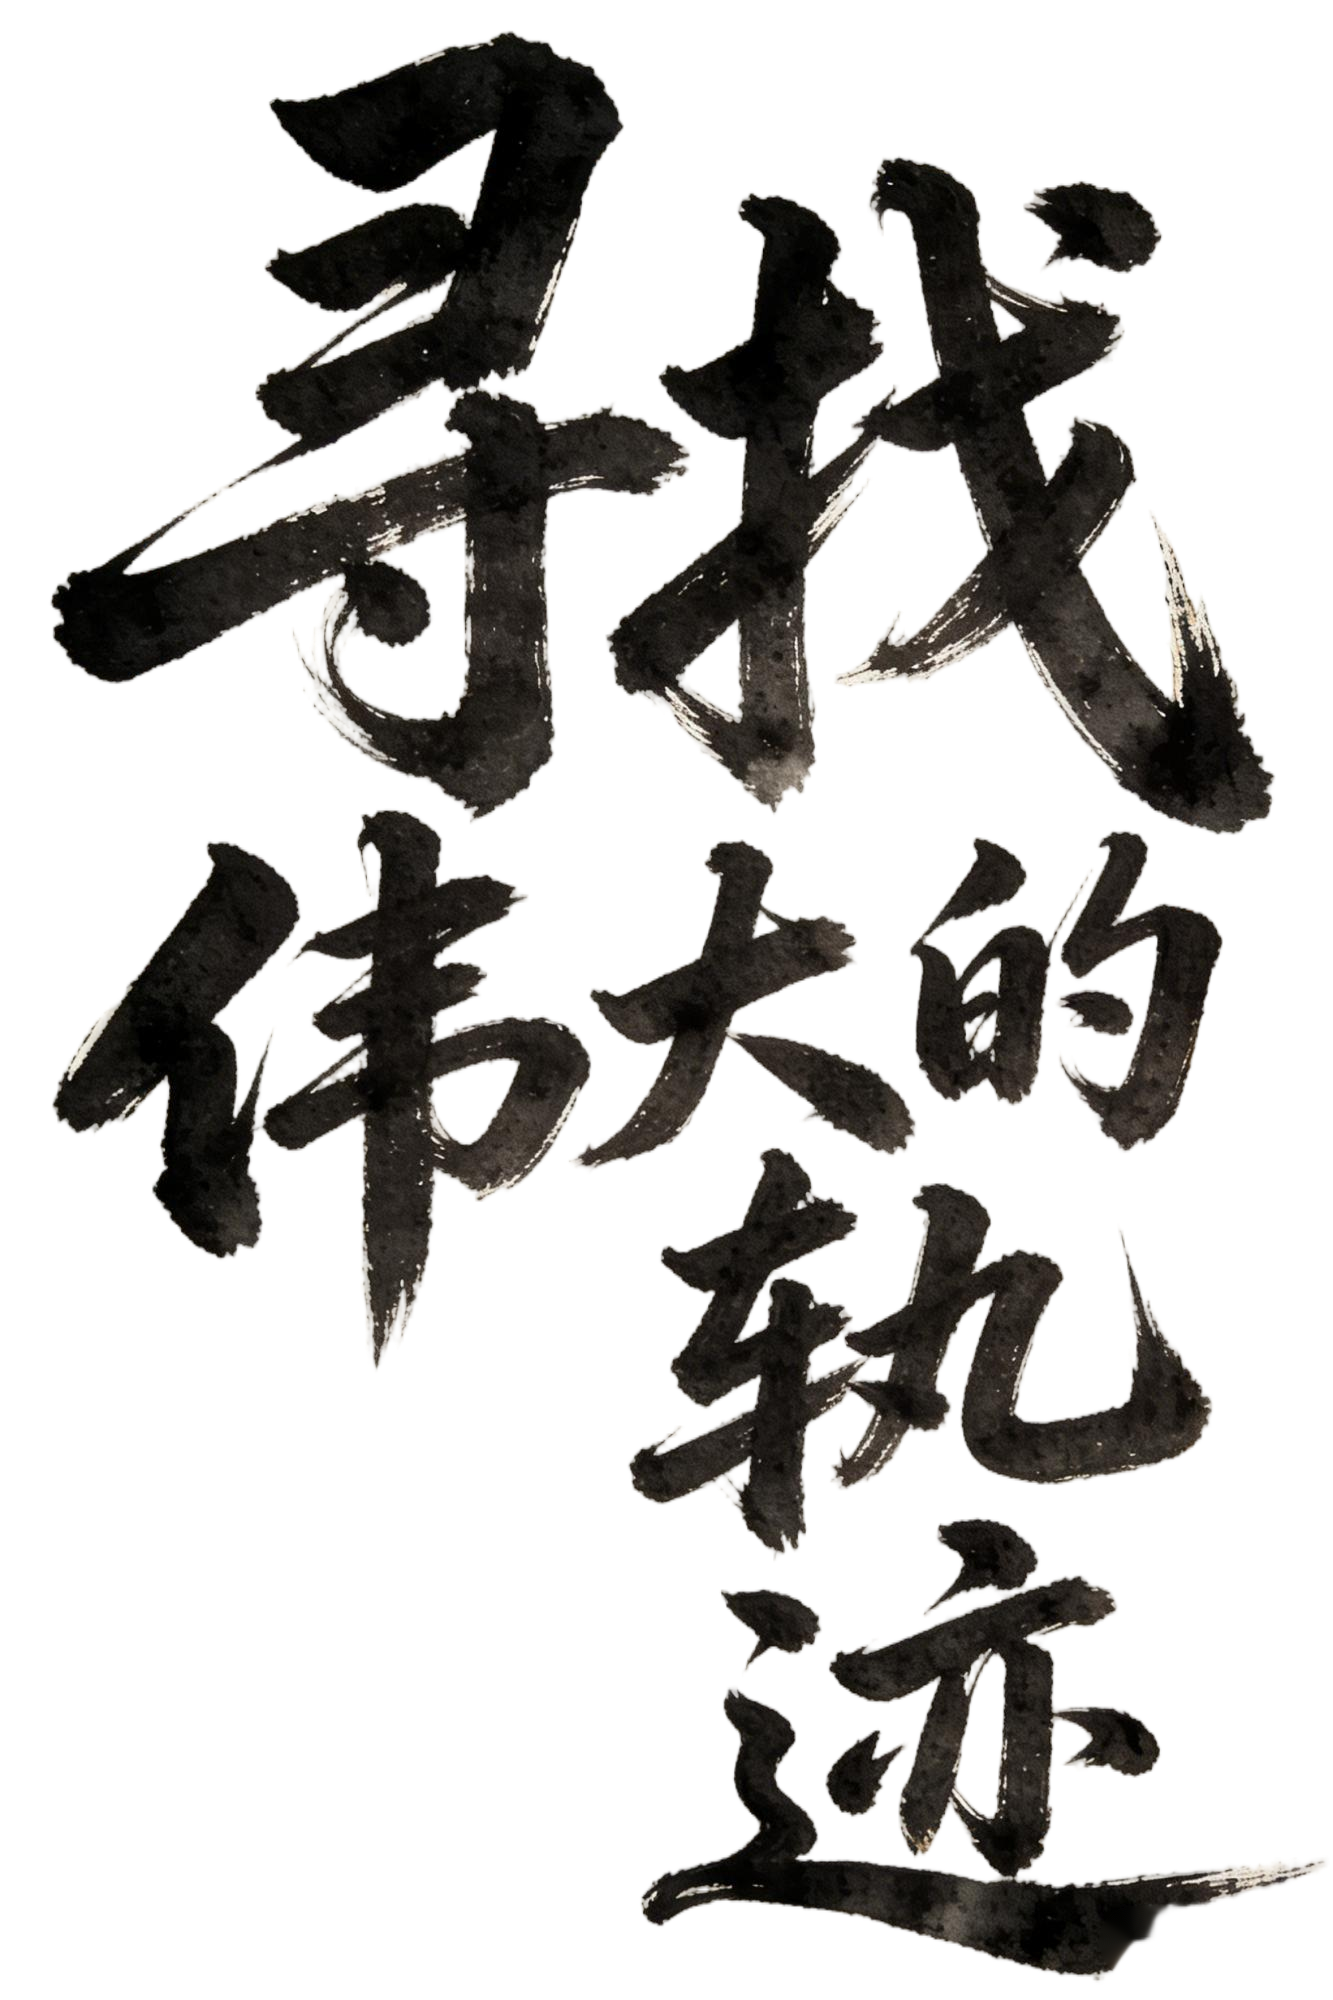 寻找
伟大的
轨
迹